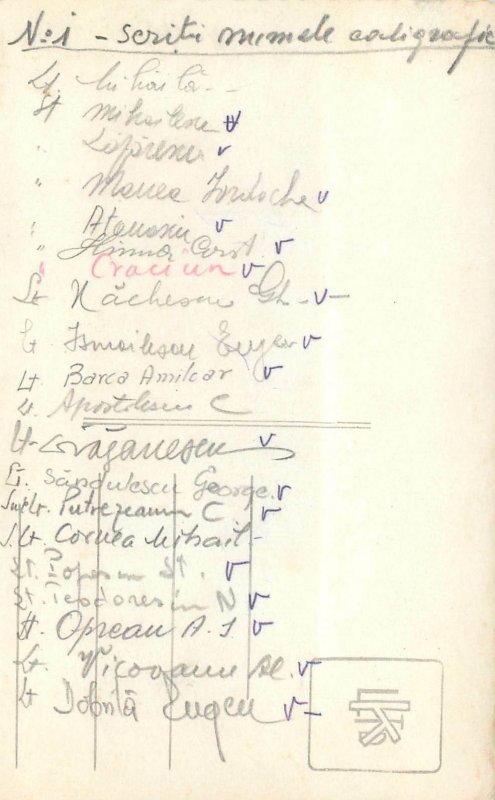 No 1 - scriti numele caligrafic
Lt. Mihăilă -
Lt Mihailescu
" Lăpărenu
" Manea Iordache
" Atanasiu
" Const.
" Craciun
Lt Năchescu Gh -
Lt Ismailescu Eugen
Lt Barca Amilcar
Lt. Apostolescu C
Lt - Drăgănescu
Lt. Săndulescu George
Putrezeanu C
S. Lt. Cornea Mihail -
Lt. Popescu St.
Lt. Teodorescu N
Lt. Oprean A. I
Lt. Vicoveanu Al.
Lt Dobrită Eugen